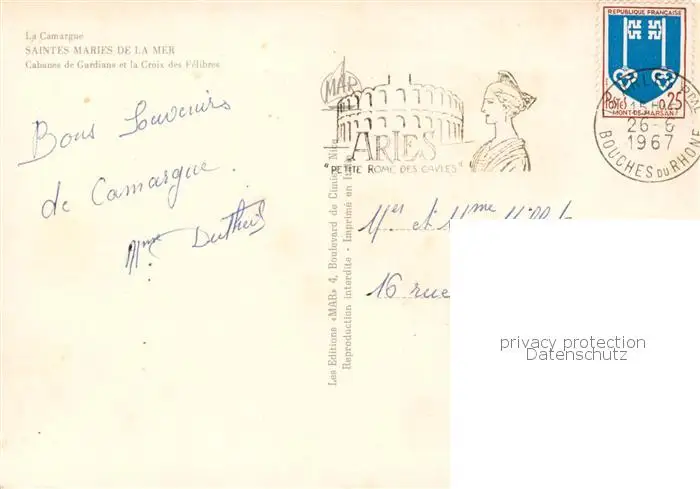 La Camargue
SAINTES MARIES DE LA MER
Cabanes de Gardians et la Croix des Félibres
Bons Souvenirs
de Camargue.
Mme Dutheil
MAR
ARLES
"PETITE ROME DES GAULES"
REPUBLIQUE FRANÇAISE
POSTES 0,25
MONT-DE-MARSAN
26-6
1967
BOUCHES DU RHONE
Les Editions «MAR» 4, Boulevard de Cimiez, Nice
Reproduction interdite - Imprimé en
Mer et Mme
16 rue
privacy protection
Datenschutz